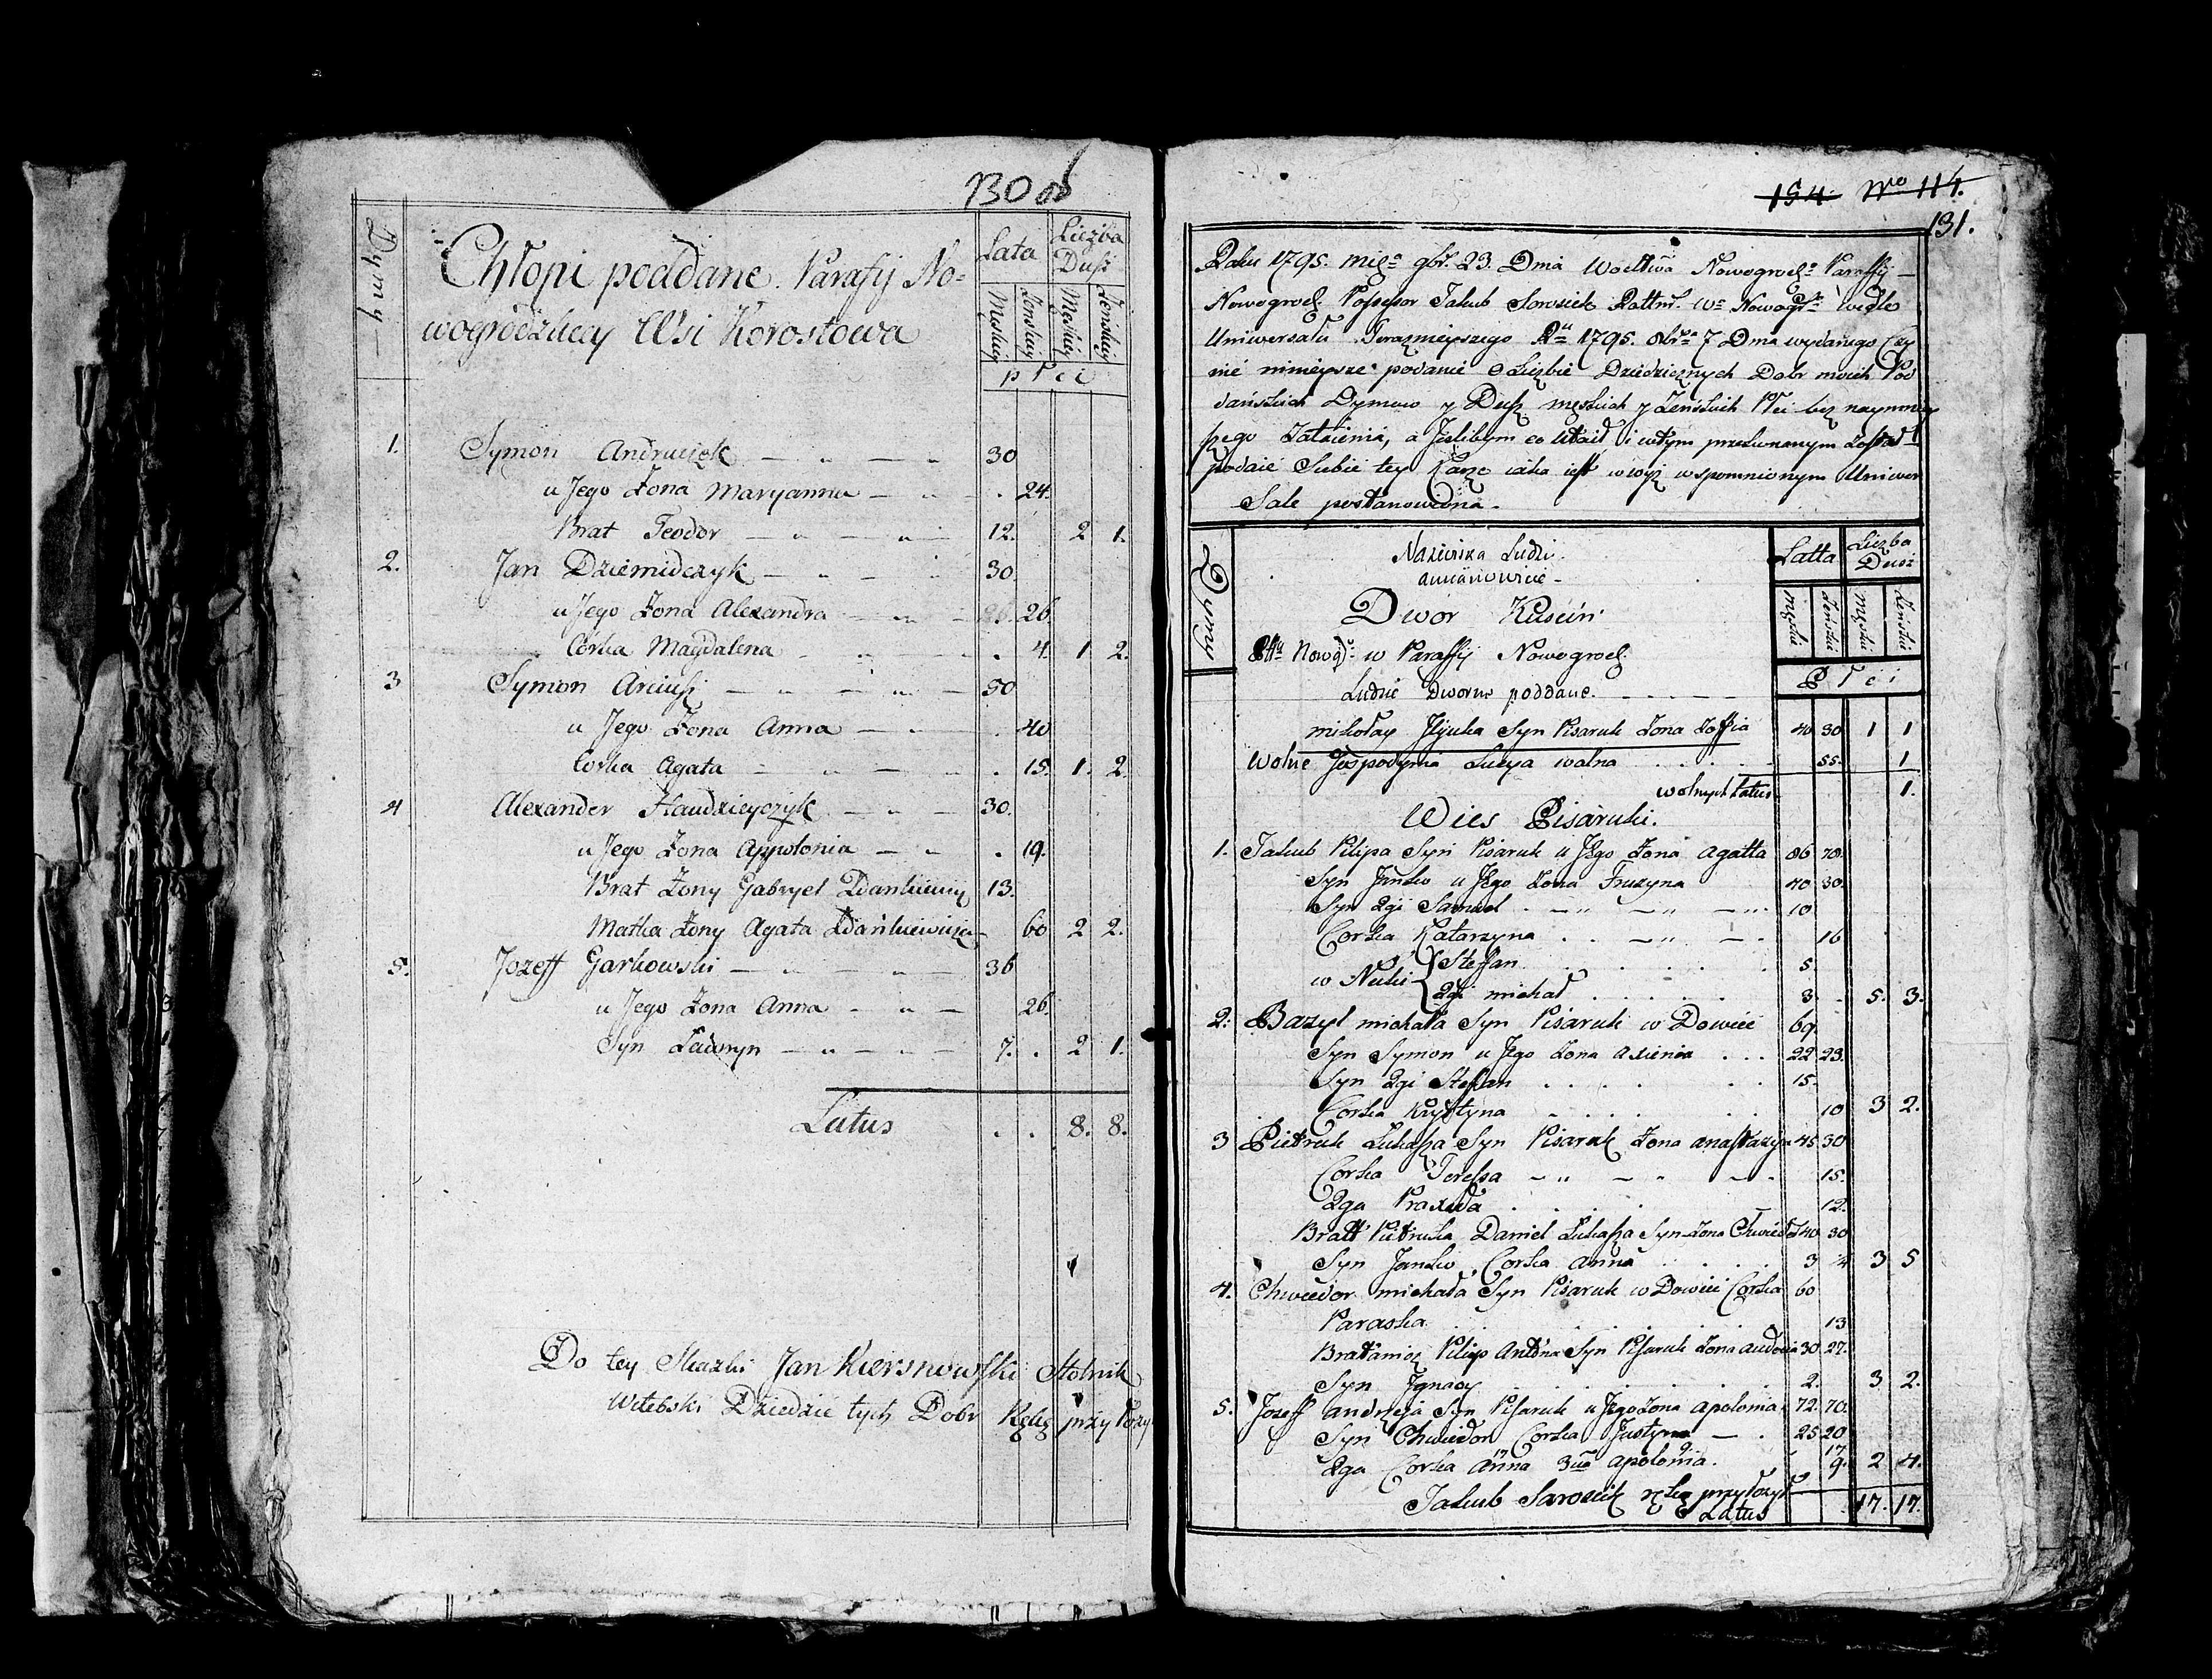 130 об
Dymy
Chłopi poddane. Parafij No=
wogrodzkiey Wsi Korostowa
Lata
Liczba Duſz
Męskiey Żeńskiey Męskiey Żeńskiey
płci
1. Symon Andruciek — „ — 30
u Jego Żona Maryanna — „ — . 24.
Brat Teodor — „ — „ — 12. 2 1.
2. Jan Dziemidczyk — „ — 30
u Jego Żona Alexandra — „ — 26
Córka Magdalena . 4. 1 2.
3 Symon Arciuſz — „ — „ — 50
u Jego Żona Anna — „ . 40
Corka Agata — „ — . 15. 1. 2.
4 Alexander Haudzieyczyk — „ — 30.
u Jego Żona Appolonia — „ . 19.
Brat Żony Gabryel 13.
Matka Żony Agata 60 2 2.
5. Jozeff Garkowski — „ — „ 36
u Jego Żona Anna — „ — 26.
Syn Ławryn — „ — „ — 7. . 2 1.
Latus . . 8. 8.
Do tey Skazki Jan Kiersnowſki Stolnik
Witebski Dziedzic tych Dobr Rękę przy
154 Nro 114.
131.
Roku 1795. 9br. 23. Dnia Nowogrod. Paraffij
Nowogrod. Poſseſsor Jakub Nowogr. wedle
Uniwersału Terazmieyszego 1795. 8br. 7 Dnia wydanego Czy
nie ninieysze podanie o Liczbie Dziedzicznych Dobr moich Pod
dańskich Dymow y Duſz męskich y Żeńskich Płci bez naymniey
ſzego Zataienia, a Jeślibym co utaił i wtym przekonanym został
podaię Siebie tey Karze iaka ieſt wwyż wspomnionym Uniwer
Sale postanowiona.
Dymy
Nazwiska Ludzi.
Dwor Kuscin
Nowogr. w Paraffij Nowogrod.
Ludzie Dworne poddane.
Latta
Liczba Dusz
męskie żeńskie męskie żeńskie
Płci
mikołay Jljuka Syn Pisaruk Żona Zoffia 40 30 1 1
Wolne Gospodynia Lucya wolna 55. 1
wolnych Latus 1.
Wies Pisaruki.
1. Jakub Pilipa Syn Pisaruk u Jego Żona Agatta 86 70.
Syn Janko u Jego Żona Fruzyna 40 30.
Syn 2gi Samuel . — „ — „ — „ 10
Corka Katarzyna . . — „ — . 16
w Nuki { Steffan 5.
2gi michał 3. . 5. 3.
2. Bazyl michała Syn Pisaruk w Dowiec 69.
Syn Symon u Jego Żona Axienia . . . 22 23.
Syn 2gi Steffan 15.
Corka Krystyna 10 3 2.
3 Pietruk Łukaſza Syn Pisaruk Żona anaſtazya 45 30
Corka Tereſsa — „ — „ — . 15.
2ga Praxeda 12.
Bratt Pietruka Daniel Łukaſza Syn Żona 40 30
Syn Janko Corka Anna 3 4 3 5
4. Chwiedor michała Syn Pisaruk w Dowiec Corka 60
Paraska 13
Pilip Antona Syn Piſaruk Żona 30 27.
Syn Jgnacy 2. 3 2.
5. Jozeff andrzeja Syn Piſaruk u Jego Żona apolonia 72. 70.
Syn Chwiedor Corka Justyna — . 25 20
2ga Corka Anna 17 3cia apolonia 9. 17 9. 2 4.
Jakub rękę przyłozył
Latus 17. 17.